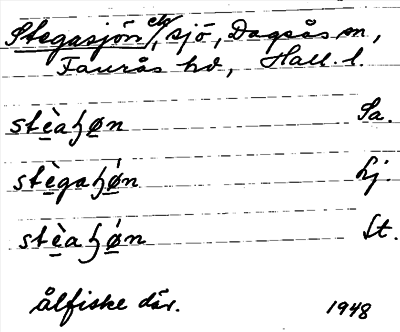 Stegasjön etc/, sjö, Dagsås sn,
Faurås hd, Hall. l.
stèaɧøn Sa.
stègaɧǿn Lj.
stèaɧǿn St.
ålfiske där. 1948